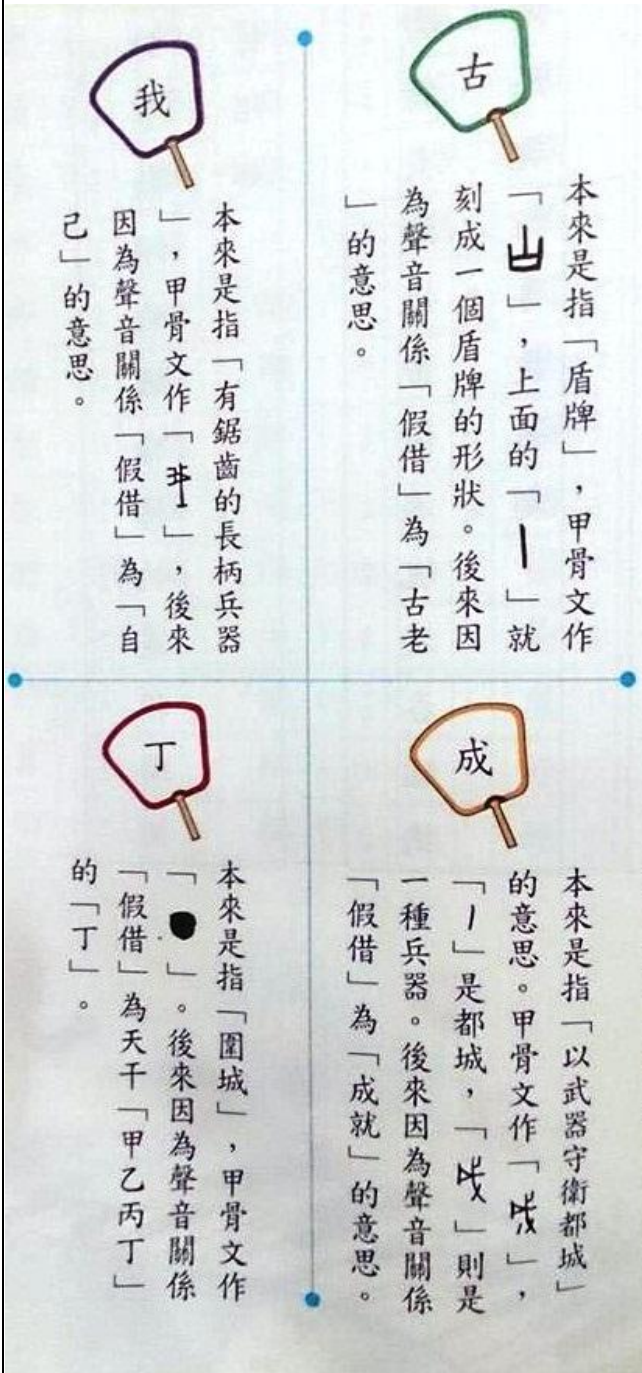 古
本來是指「盾牌」，甲骨文作
「　」，上面的「丨」就
刻成一個盾牌的形狀。後來因
為聲音關係「假借」為「古老
」的意思。
我
本來是指「有鋸齒的長柄兵器
」，甲骨文作「　」，後來
因為聲音關係「假借」為「自
己」的意思。
成
本來是指「以武器守衛都城」
的意思。甲骨文作「　」，
「丨」是都城，「　」則是
一種兵器。後來因為聲音關係
「假借」為「成就」的意思。
丁
本來是指「圍城」，甲骨文作
「●」。後來因為聲音關係
「假借」為天干「甲乙丙丁」
的「丁」。